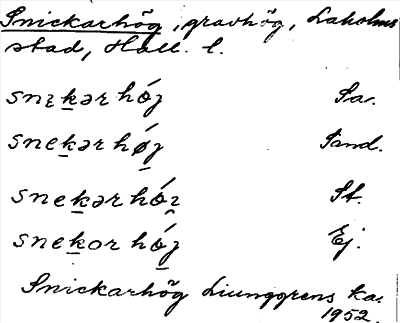 Snickarhög, gravhög, Laholms
stad, Hall. l.
snɪk̠ər hǿʒ Sa.
snek̠ər hǿ̠ʒ Sand.
snek̠ər hǿʒ St.
snek̠or hǿ̠ʒ Ej.
Snickarhög Liunggrens ka.
1952.